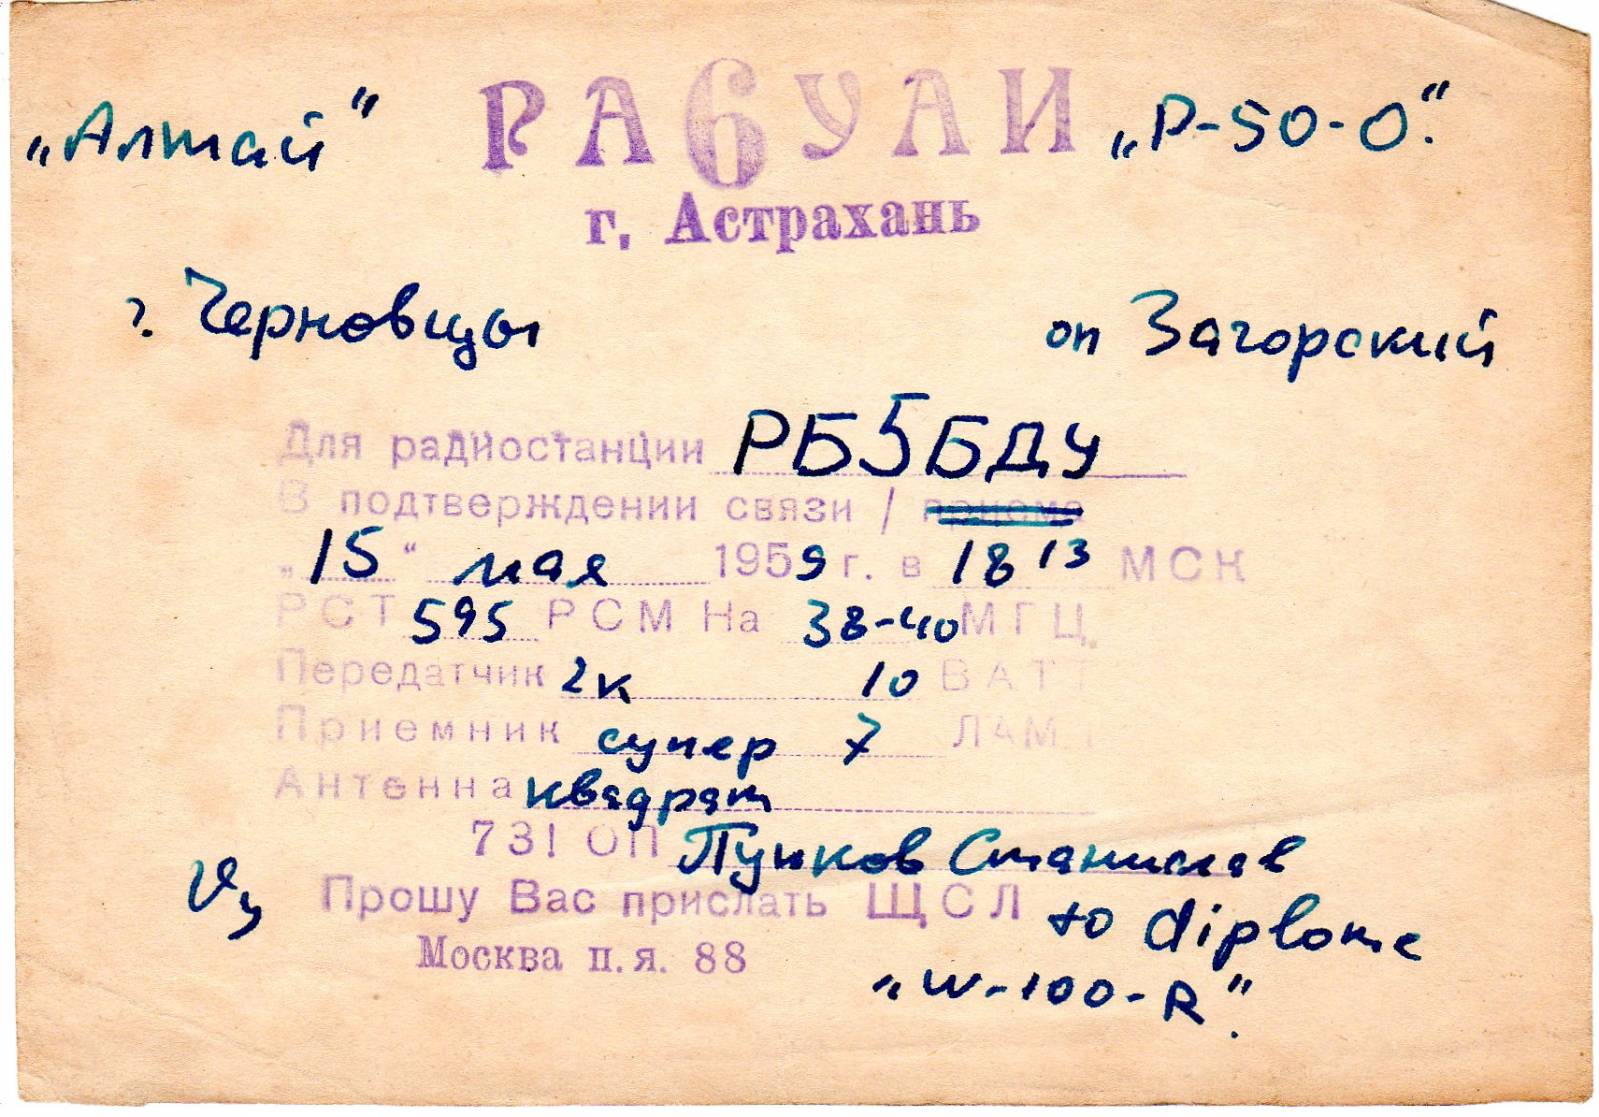 „Алтай" РА6УАИ „Р-50-О".
г. Астрахань
г. Черновцы оп Загорский
Для радиостанции РБ5БДУ
В подтверждении связи / приема
„15" мая 1959 г. в 18 13 МСК
РСТ 595 РСМ На 38-40 МГЦ.
Передатчик 2к 10 ВАТТ
Приемник супер 7 ЛАМП
Антенна квадрат
73! ОП Пунков Станислав
Прошу Вас прислать ЩСЛ to diplome
Москва п.я. 88 „W-100-R".